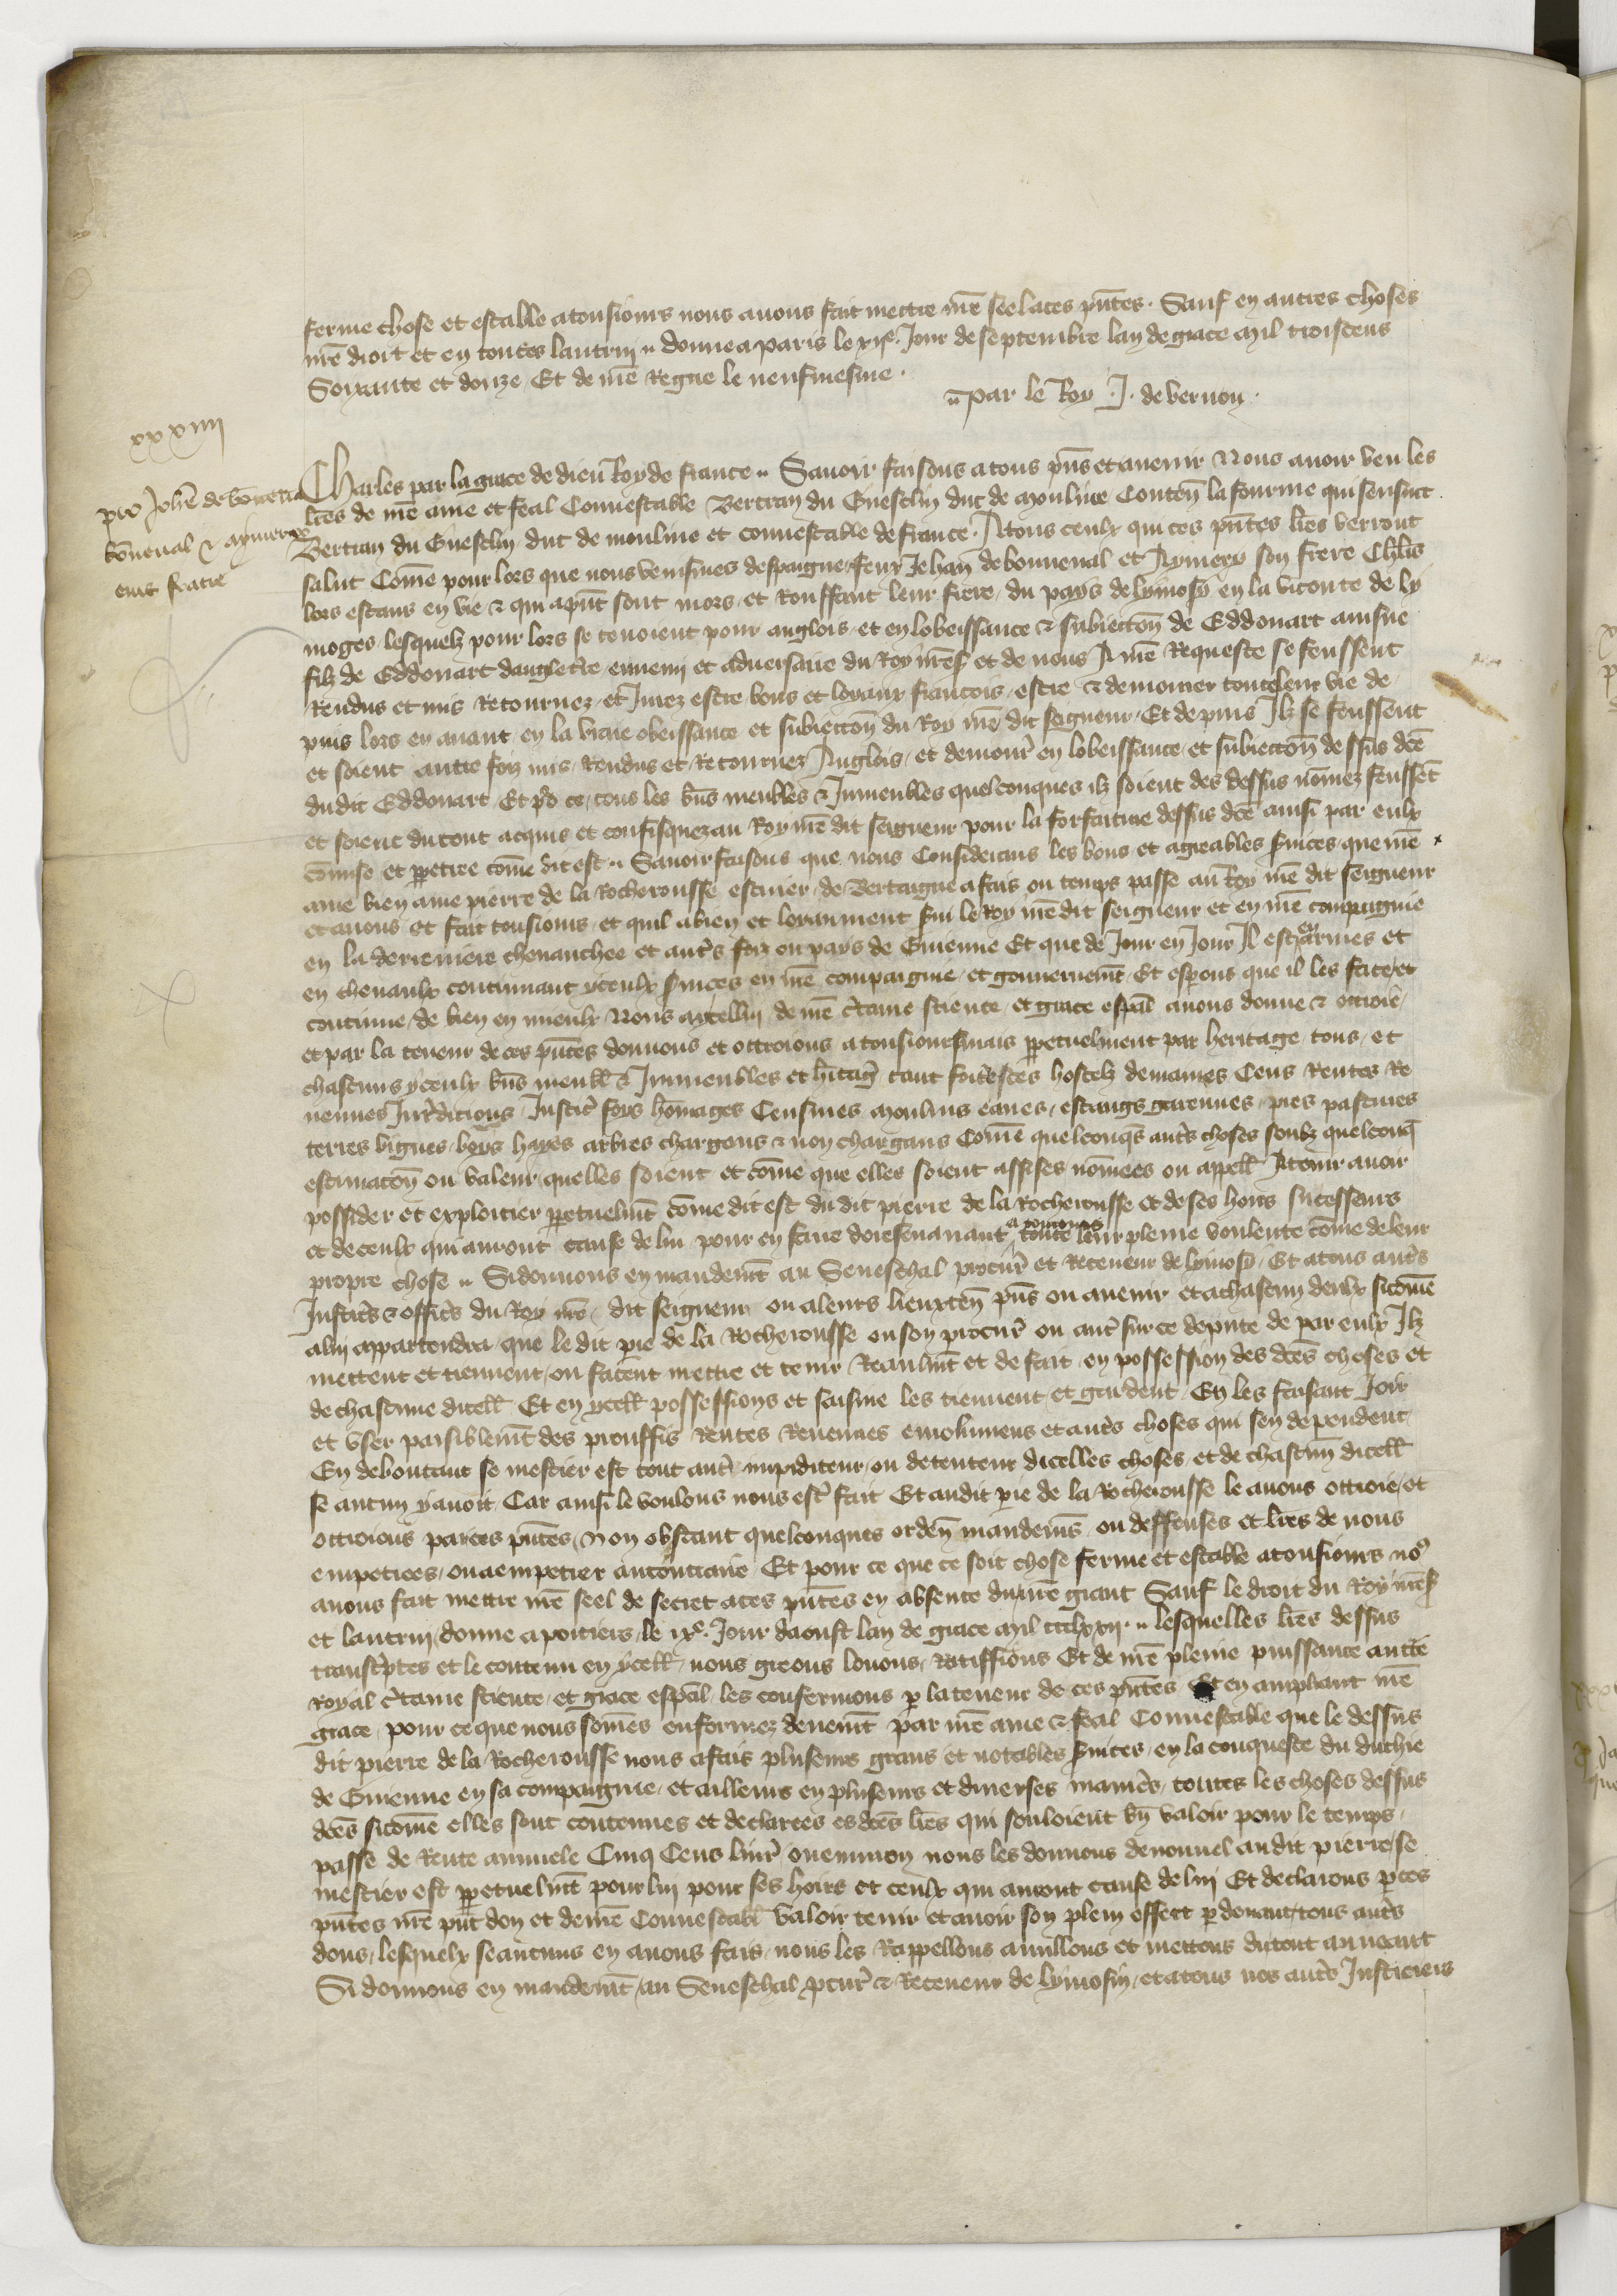 ferme chose et estable a tousiours nous avons fait mettre nre̅ seel a ces pn̅tes. Sauf en autres choses
nre̅ droit et en toutes lautruy .. donne a paris le xije. Jour de septembre lan de grace mil troiscens
Soixante et douze Et de nre̅ Regne le neufuiesme.
.. par le Roy J. de vernon.
xxxiiii
pro Johe̅
bo̅neval et aymerico
eius fratre
Charles par la grace de dieu Roy de france .. Savoir faisons a tous pn̅s et avenir Nous avoir veu les
lr̅es de nre̅ ame et feal Connestable Bertran du Guesclin duc de mouline Conten̅ la fourme qui sensuit
Bertran du Guesclin duc de mouline et connestable de france. A tous ceulx qui ces pn̅tes lr̅es verront
salut Com̅e pour lors que nous venismes despaigne feux Jehan de bonneval et Aymery son frere Chl̅rs
lors estans en vie & qui a pn̅t sont mors et Rouffaut leur frere du pays de lymosin̅ en la viconte de ly
moges lesquelz pour lors se tenoient pour anglois et en lobeissance & subiection̅ de Eddouart ainsne
filz de Eddouart dangletr̅e ennemi et adversaire du Roy nre̅ s̅ et de nous A nre̅ Requeste se feussent
Rendus et mis Retournez et Jurez estre bons et loyaux francois estre & demourer toute leur vie de
puis lors en avant en la vraie obeissance et subiection̅ du Roy nre̅ dit seigneur Et depuis Ilz se feussent
et soient autre foiz mis Rendus et Retournez Anglois et demour̅ en lobeissance et subiection̅ dessus dc̅e
dudit Eddouart Et po̅ ce tous les bn̅s meubles & Inmeubles quelconques ilz soient des dessus nom̅ez feusse̅t
et soient du tout acquis et confisquez au Roy nre̅ dit seigneur pour la forfaiture dessus dc̅e ainsi par eulx
com̅ise et perpetree com̅e dit est .. Savoir faisons que nous Considerans les bons et agreables s̅vices que nre̅
ame bien ame pierre de la Rocherousse escuier de Bertaigne a fais ou temps passe au Roy nre̅ dit seigneur
et a nous et fait tousiours et quil a bien et loyaument s̅vi le Roy nre̅ dit seigneur et en nre̅ compaignie
en la derreniere chevauchee et autr̅s foiz ou pays de Guienne Et que de Jour en Jour Il est en armes et
en chevaulx continuant yceulx s̅vices en nre̅ compaignie et gouvernem̅t Et esperons que il les face et
continue de bien en mieulx Nous a ycellui de nre̅ c̅taine science et grace esp̅al avons donne & ottroie
et par la teneur de ces pn̅tes donnons et ottroions a tousioursmais perpetuelment par heritage tous et
chascuns yceulx bn̅s meubl̅ & Inmeubles et h̅itag̅ tant fort̅esces hostelz demaines Cens Rentes Re
venues Jur̅dicions Justic̅ foys hom̅ages Censives moulins eaues estangs garennes pres pastures
terres vignes boys hayes arbres chargans & non chargans Com̅e quelconq̅s autr̅s choses soubz quelconq̅
estimacio̅n ou valeur quelles soient et com̅e que elles soient assises nom̅ees ou appell̅ A tenir avoir
possider et exploitier perpetuelm̅t com̅e dit est du dit pierre de la Rocherousse et de ses hoirs successeurs
et de ceulx qui auront cause de lui pour en faire doresenavant a tousiours toute leur pleine voulente com̅e de leur
propre chose .. Si donnons en mandem̅t au Seneschal procur̅ et Receveur de lymosin̅ Et a tous autr̅s
Justic̅s & offic̅s du Roy nre̅ dit seigneur ou a leurs lieuxten̅ pn̅s ou avenir et a chascun deulx si com̅e
a lui appartendra que le dit pie̅ de la Rocherousse ou son procur̅ ou autr̅ sur ce depute de par eulx Ilz
mettent et tiennent ou facent mettre et tenir Reaulm̅t et de fait en possession des dc̅es choses et
de chascune dicell̅ Et en ycell̅ possessions et saisine les tiennent et gardent En les faisant Joir
et user paisiblem̅t des prouffis Rentes Revenues emolumens et autr̅s choses qui sen dependent
En deboutant se mestier est tout autr̅ impediteur ou detenteur dicelles choses et de chascun̅ dicell̅
se aucun y avoit Car ainsi le voulons nous estr̅ fait Et audit pie̅ de la Rocherousse le avons ottroie et
ottroions par ces pn̅tes Non obstant quelconques orden̅ mandem̅s ou deffenses et lr̅es de nous
empetrees ou a empetrer au contraire Et pour ce que ce soit chose ferme et estable a tousiours no9
avons fait mettre nre̅ seel de secret a ces pn̅tes en absence du nre̅ grant Sauf le droit du Roy nre̅ s̅
et lautruy donne a poitiers le ixe. Jour daoust lan de grace mil ccclxxij. .. lesquelles lr̅es dessus
transc̅ptes et le contenu en ycell̅ nous greons louons Ratiffions Et de nre̅ pleine puissance auct̅e
Royal c̅taine science et grace esp̅al les confermons p̅ la teneur de ces pn̅tes Et en ampliant nre̅
grace pour ce que nous som̅es enformez deuem̅t par nre̅ ame & feal Connestable que le dessus
dit pierre de la Rocherousse nous a fais pluseurs grans et notables s̅vices en la conqueste du duchie
de Guienne en sa compaignie et ailleurs en pluseurs et diverses manier̅s toutes les choses dessus
dc̅es si com̅e elles sont contenues et declarees es dc̅es lr̅es qui souloient bn̅ valoir pour le temps
passe de Rente annuele Cinq Cens livr̅ ou environ nous les donnons de nouvel audit pierre se
mestier est perpetuelm̅t pour lui pour ses hoirs et ceulx qui auront cause de lui Et declarons p̅ ces
pn̅tes nre̅ pn̅t don et de nre̅ Connestabl̅ valoir tenir et avoir son plein effect p̅ devant tous autr̅s
dons lesquelx se aucuns en avons fais nous les Rappellons anullons et mettons du tout au neant
Si donnons en mandem̅t au Seneschal p̅cur̅ & Receveur de lymosin et a tous nos autr̅s Justiciers